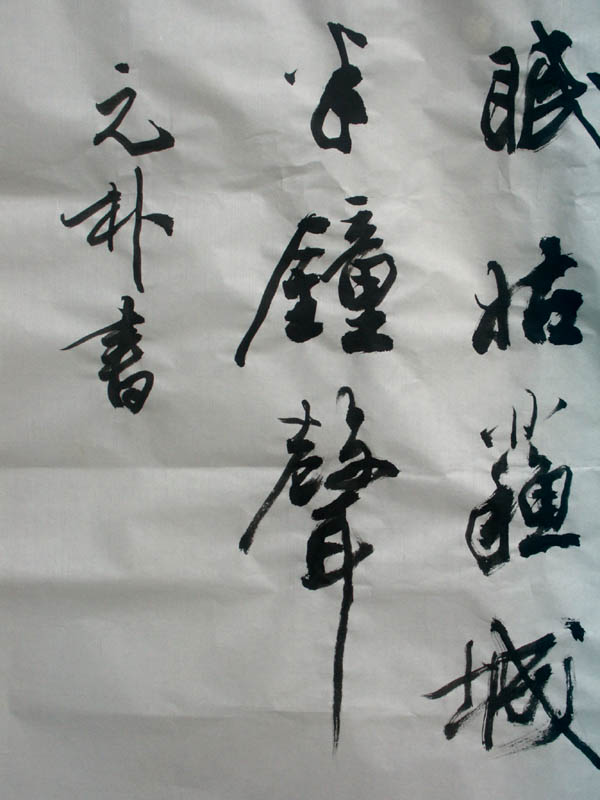 眠姑蘇城
半鐘聲
元朴書